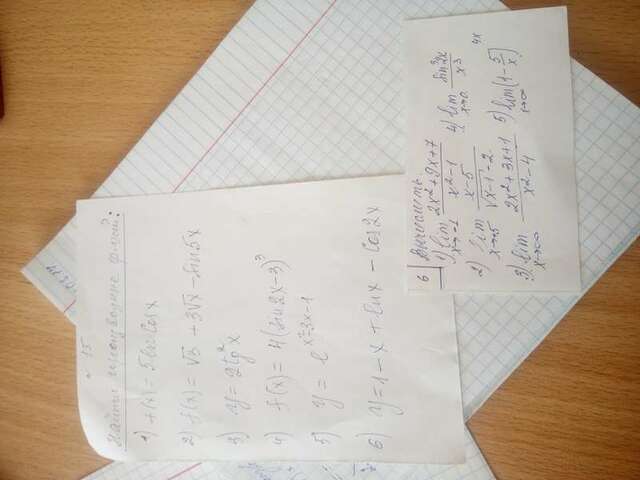 15
Найти производные ф-ций:
1) f(x) = 5 ln cos x
2) f(x) = √3 + 3√x - sin 5x
3) y = 2tg²x
4) f(x) = 4(sin 2x - 3)³
5) y = e^(x²-3x-1)
6) y = 1 - x + ln x - cos 2x
6 Вычислить.
1) lim x→-1 (2x² + 9x + 7)/(x² - 1)
2) lim x→5 (x - 5)/(√(x - 1) - 2)
3) lim x→∞ (2x² + 3x + 1)/(x² - 4)
4) lim x→0 sin³2x/x³
5) lim x→∞ (1 - 5/x)^4x